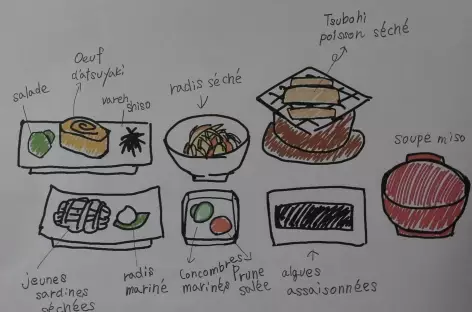 salade
Oeuf
d'atsuyaki
vareh
shiso
radis séché
Tsubohi
poisson séché
soupe miso
jeunes
sardines
séchées
radis
mariné
Concombres
marinés
Prune
salée
algues
assaisonnées